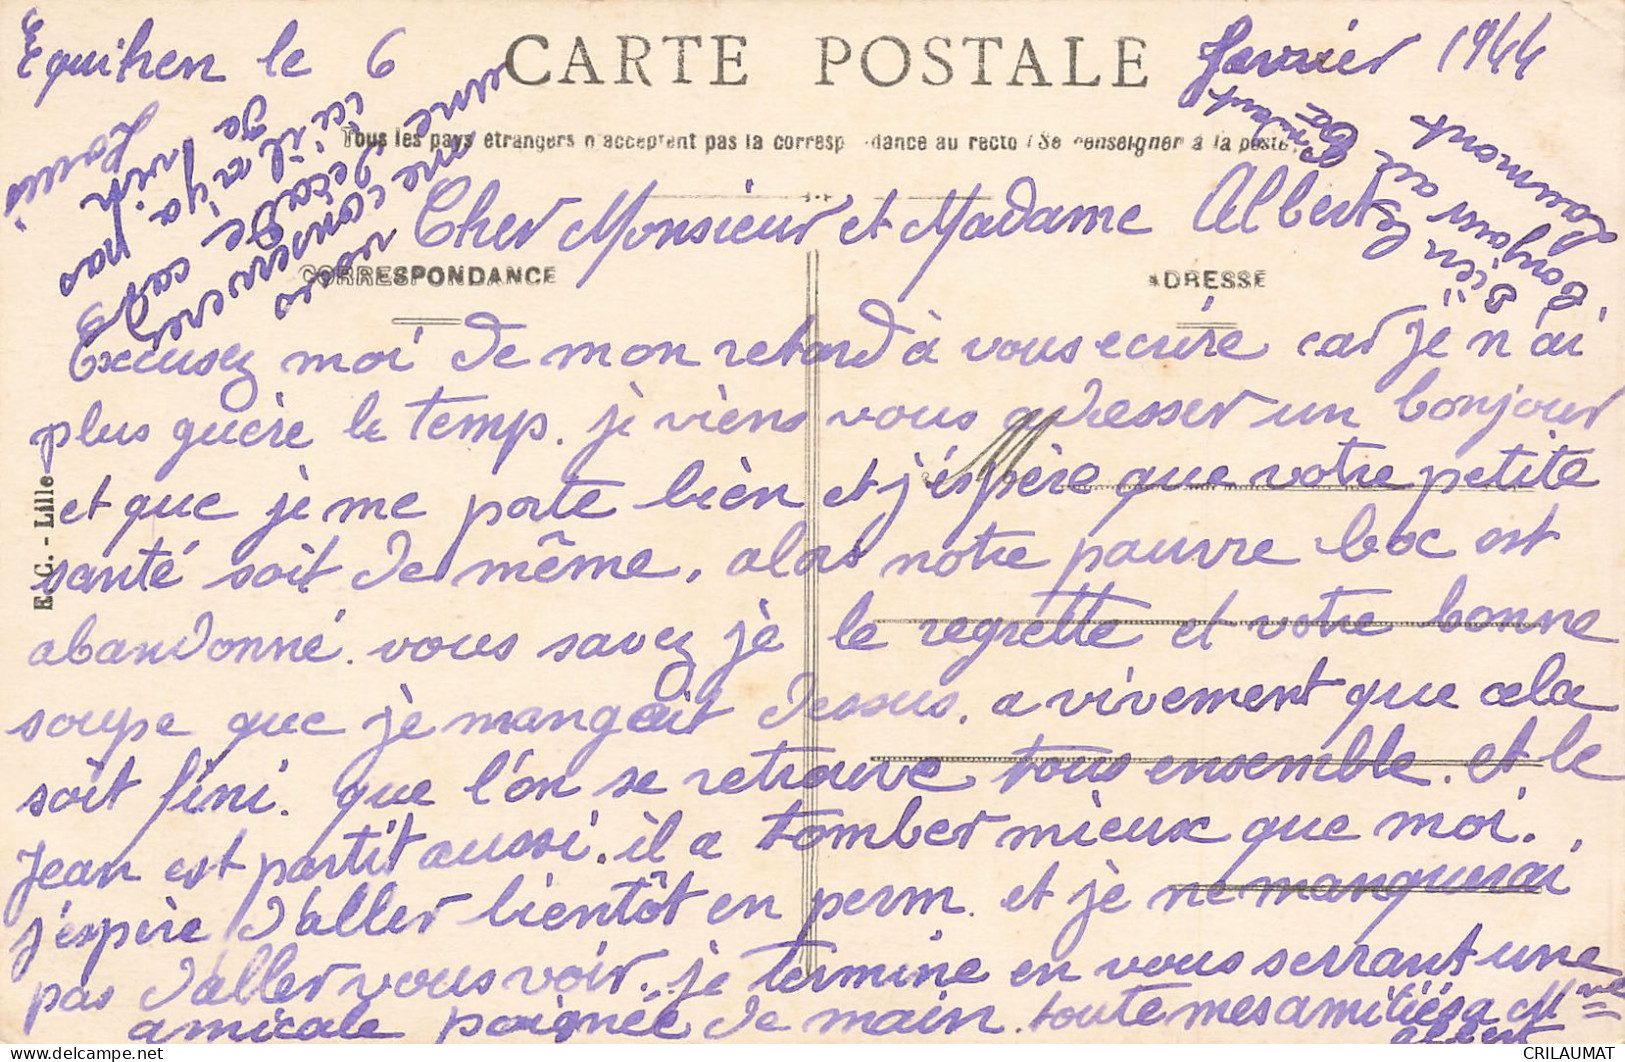 Equihen le 6 Fevrier 1944
CARTE POSTALE
Tous les pays étrangers n'acceptent pas la corresp dance au recto (Se renseigner à la poste.
Cher Monsieur et Madame Albert
CORRESPONDANCE
ADRESSE
Excusez moi de mon retard à vous ecrire car je n'ai
plus guère le temp. je viens vous adresser un bonjour
et que je me porte bien et j'espère que votre petite
santé soit de même, alors notre pauvre boc est
abandonné. vous savez je le regrette et votre bonne
soupe que je mangeait dessus. a vivement que cela
soit fini. que l'on se retrouve tous ensemble. et le
Jean est partit aussi. il a tomber mieux que moi.
j'espère d'aller bientôt en perm. et je ne manquerai
pas d'aller vous voir. je termine en vous serrant une
amicale poignée de main. toute mes amitiés a M me
albert
E. C. - Lille
vous
conservez
une
ici il n'y a
pas
Louis
bien le
bonjour au
Laumont
CRILAUMAT